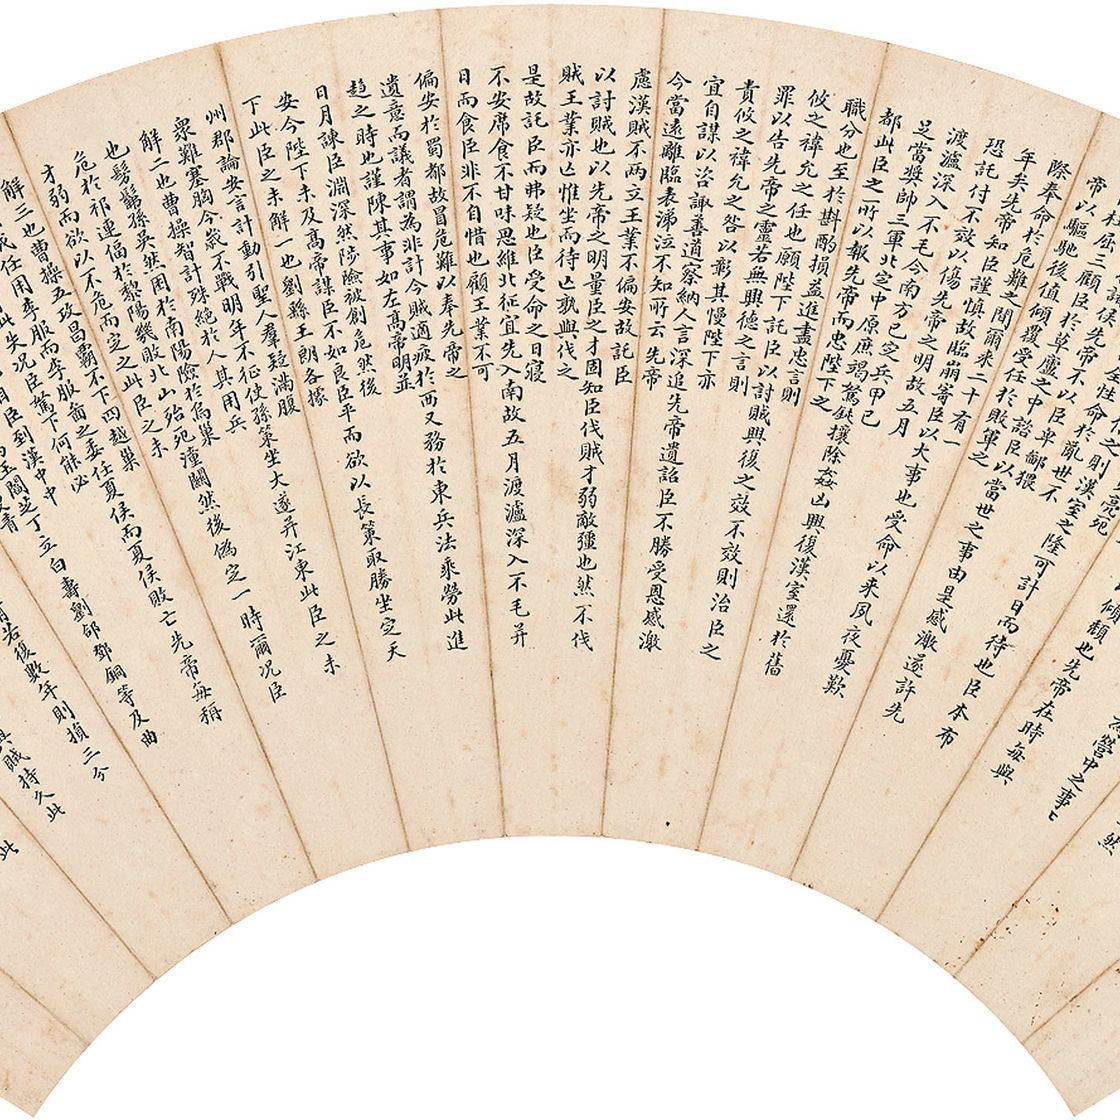 營中之事
傾頽也先帝在時每與
之則漢室之隆可計日而待也臣本布
全性命於亂世不
諸侯先帝不以臣卑鄙猥
枉屈三顧臣於草廬之中諮臣以當世之事由是感激遂許先
帝以驅馳後值傾覆受任於敗軍之
際奉命於危難之間爾來二十有一
年矣先帝知臣謹慎故臨崩寄臣以大事也受命以來夙夜憂歎
恐託付不效以傷先帝之明故五月
渡瀘深入不毛今南方已定兵甲已
足當獎帥三軍北定中原庶竭駑鈍攘除姦凶興復漢室還於舊
都此臣之所以報先帝而忠陛下之
職分也至於斟酌損益進盡忠言則
攸之禕允之任也願陛下託臣以討賊興復之效不效則治臣之
罪以告先帝之靈若無興德之言則
責攸之禕允之咎以彰其慢陛下亦
宜自謀以咨諏善道察納人言深追先帝遺詔臣不勝受恩感激
今當遠離臨表涕泣不知所云 先帝
慮漢賊不兩立王業不偏安故託臣
以討賊也以先帝之明量臣之才固知臣伐賊才弱敵彊也然不伐
賊王業亦亡惟坐而待亡孰與伐之
是故託臣而弗疑也臣受命之日寢
不安席食不甘味思維北征宜先入南故五月渡瀘深入不毛并
日而食臣非不自惜也顧王業不可
偏安於蜀都故冒危難以奉先帝之
遺意而議者謂為非計今賊適疲於西又務於東兵法乘勞此進
趨之時也謹陳其事如左高帝明並
日月謀臣淵深然陟險被創危然後
安今陛下未及高帝謀臣不如良臣平而欲以長策取勝坐定天
下此臣之未解一也劉繇王朗各據
州郡論安言計動引聖人羣疑滿腹
衆難塞胸今歲不戰明年不征使孫策坐大遂并江東此臣之未
解二也曹操智計殊絕於人其用兵
也髣髴孫吳然困於南陽險於烏巢
危於祁連偪於黎陽幾敗北山殆死潼關然後偽定一時爾况臣
才弱而欲以不危而定之此臣之未
解三也曹操五攻昌霸不下四越巢
任用李服而李服啚之委任夏侯而夏侯敗亡先帝每稱
此失况臣駑下何能必
臣到漢中中
玉閻芝丁立白壽劉郃鄧銅等及曲
若復數年則損三分
賊持久此
此